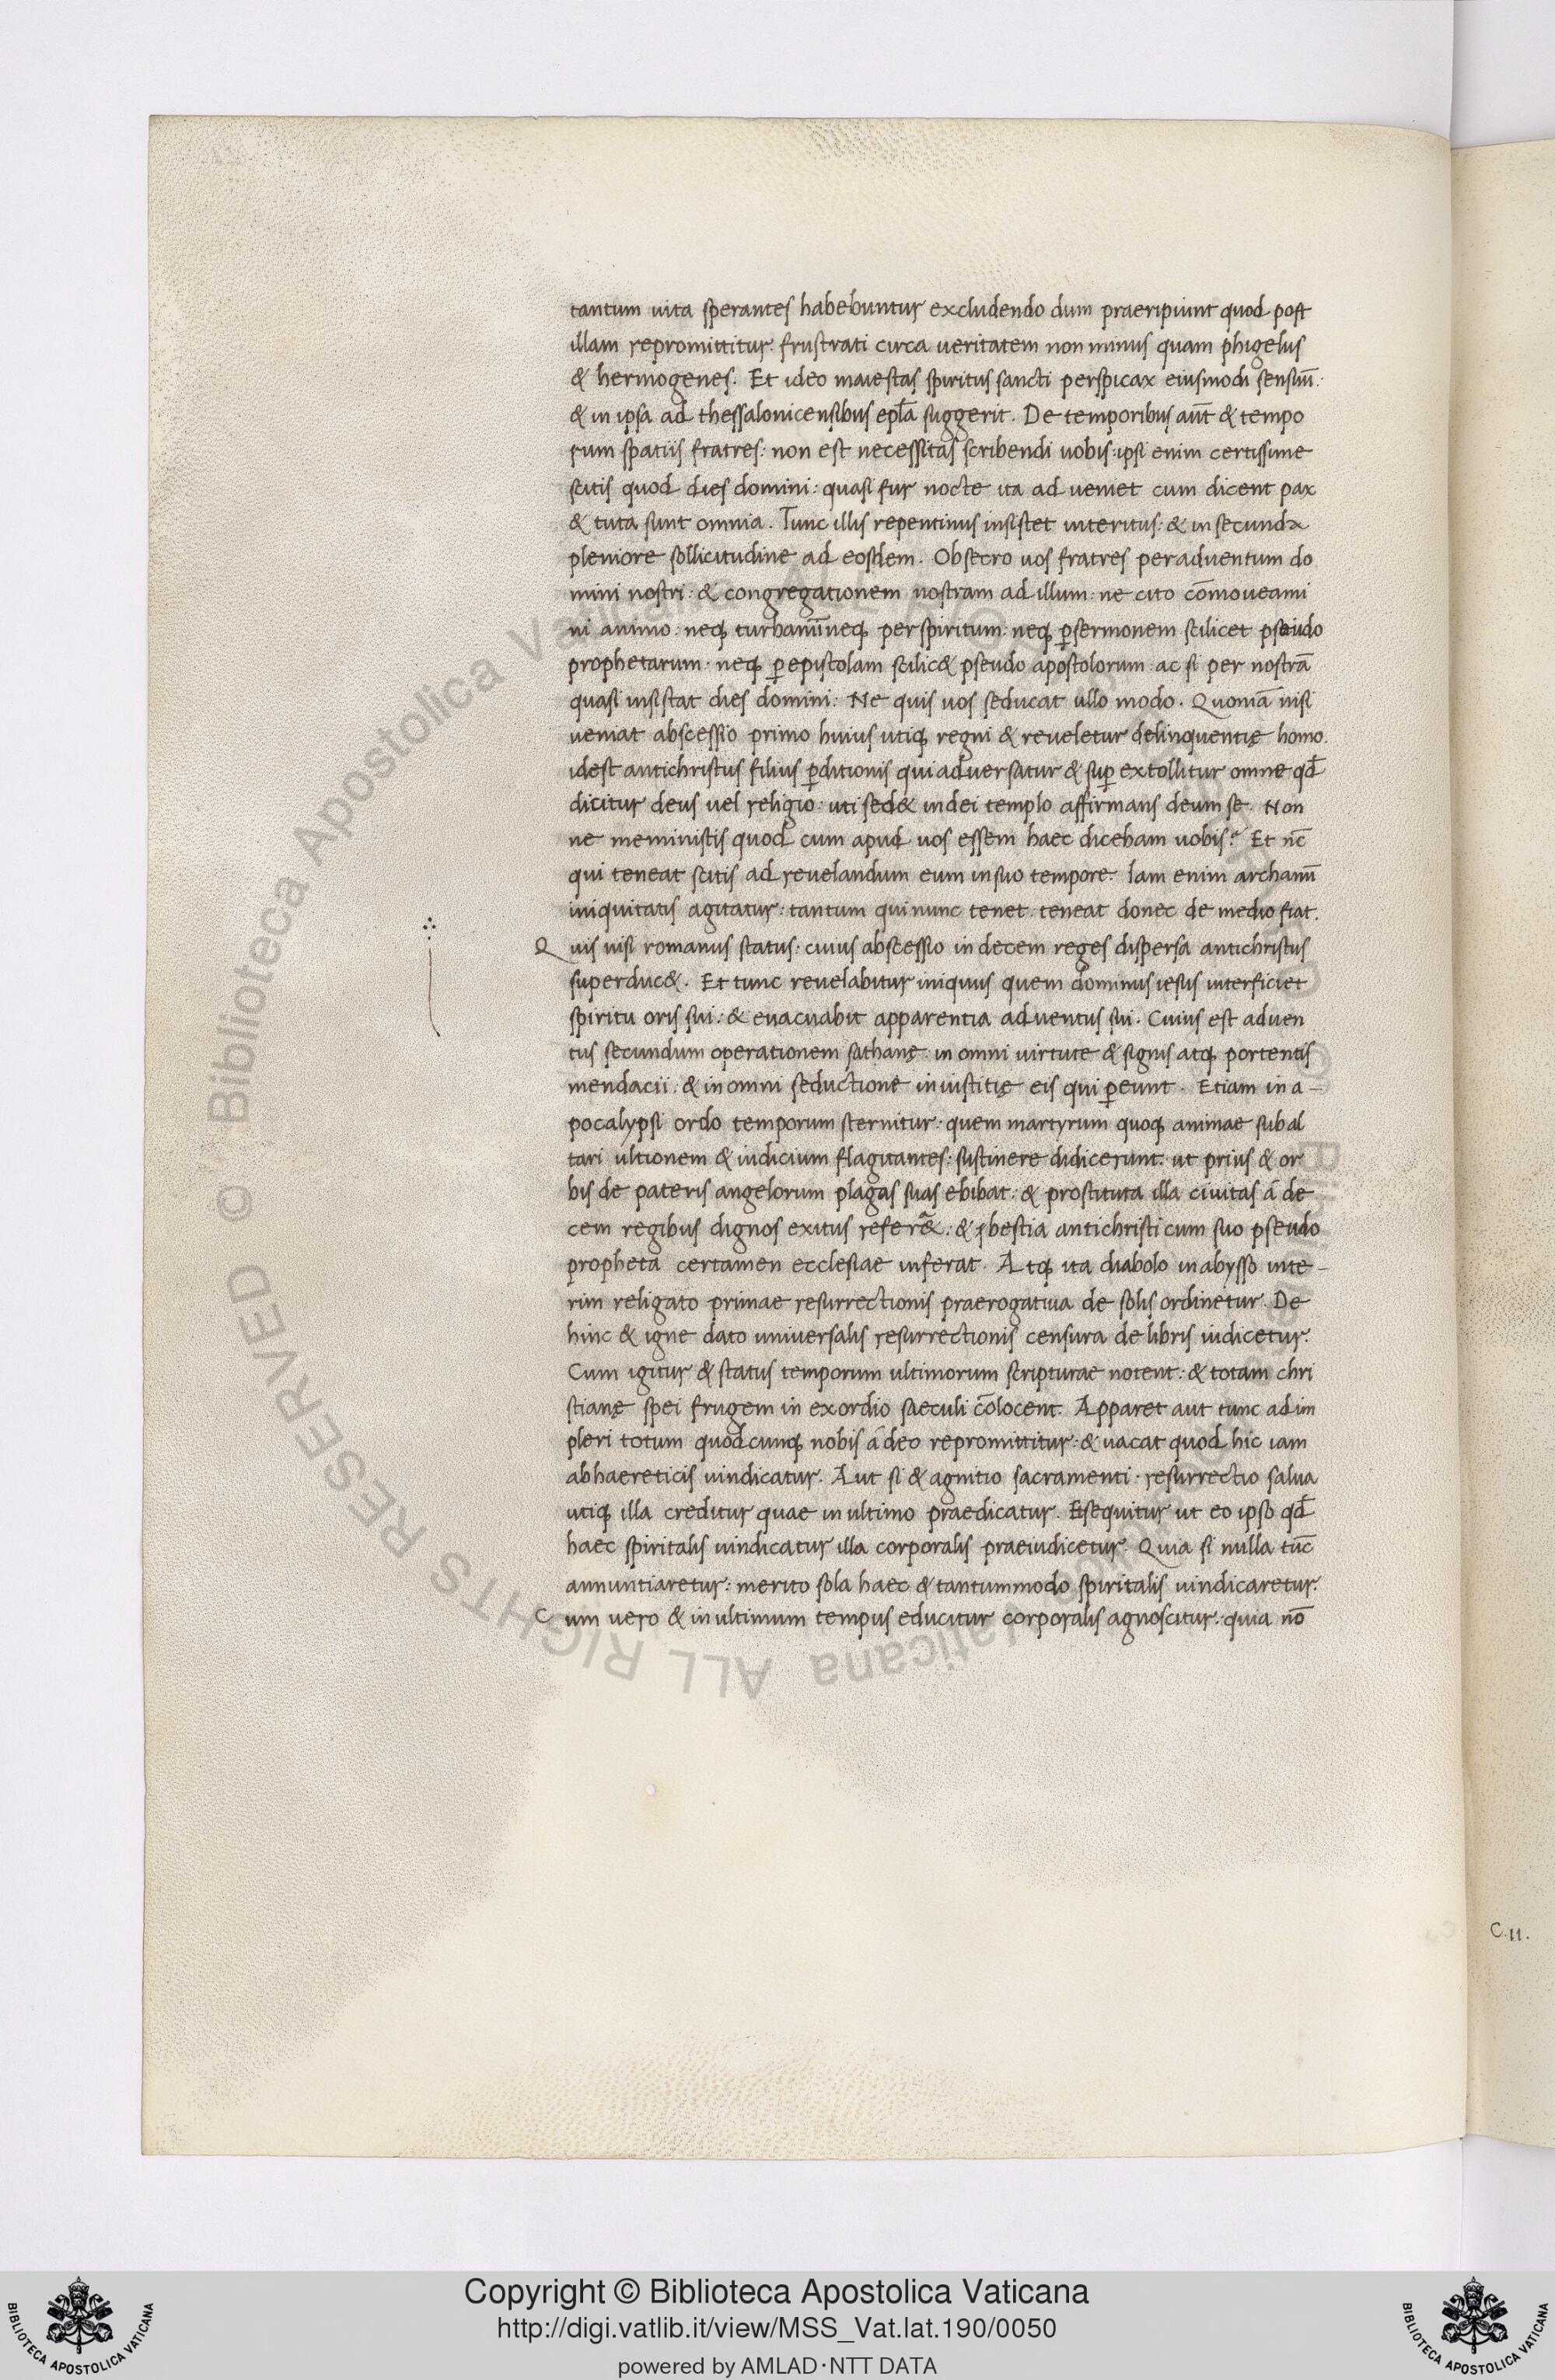 tantum uita sperantes habebuntur excludendo dum praeripiunt quod post
illam repromittitur: frustrati circa ueritatem non minus quam phigelus
& hermogenes. Et ideo maiestas spiritus sancti perspicax eiusmodi sensuū:
& in ipsa ad thessalonicensibus epl̄a suggerit. De temporibus aūt & tempo
rum spatiis fratres: non est necessitas scribendi uobis: ipsi enim certissime
scitis quod dies domini: quasi fur nocte ita ad ueniet cum dicent pax
& tuta sunt omnia. Tunc illis repentinus insistet interitus: & in secunda
pleniore sollicitudine ad eosdem. Obsecro uos fratres per aduentum do
mini nostri: & congregationem nostram ad illum: ne cito cōmoueami
ni animo: neq; turbaminī neq; per spiritum: neq; ꝑ sermonem scilicet pseudo
prophetarum: neq; ꝑ epistolam scilic& pseudo apostolorum: ac si per nostrā
quasi insistat dies domini: Ne quis uos seducat ullo modo. Quoniā nisi
ueniat abscessio primo huius utiq; regni & reueletur delinquentię homo.
idest antichristus filius ꝑditionis qui aduersatur & suꝑ extollitur omne qđ
dicitur deus uel religio: uti sed& in dei templo affirmans deum se. Non
ne meministis quod cum apud uos essem haec dicebam uobis? Et nc̄
qui teneat scitis ad reuelandum eum in suo tempore. Iam enim archanū
iniquitatis agitatur: tantum qui nunc tenet: teneat donec de medio fiat.
Quis nisi romanus status: cuius abscessio in decem reges dispersa antichristus
superduc&. Et tunc reuelabitur iniquus quem dominus iesus interficiet
spiritu oris sui: & euacuabit apparentia aduentus sui. Cuius est aduen
tus secundum operationem sathanę: in omni uirtute & signis atq; portentis
mendacii: & in omni seductione iniustitię eis qui ꝑeunt. Etiam in a-
pocalypsi ordo temporum sternitur: quem martyrum quoq; animae sub al
tari ultionem & iudicium flagitantes: sustinere didicerunt: ut prius & or
bis de pateris angelorum plagas suas ebibat: & prostituta illa ciuitas á de
cem regibus dignos exitus refer&: & bestia antichristi cum suo pseudo
propheta certamen ecclesiae inferat. Atq; ita diabolo in abysso inte-
rim religato primae resurrectionis praerogatiua de solis ordinetur. De
hinc & igne dato uniuersalis resurrectionis censura de libris iudicetur.
Cum igitur & status temporum ultimorum scripturae notent: & totam chri
stianę spei frugem in exordio saeculi cōlocent. Apparet aut tunc adim
pleri totum quodcunq; nobis á deo repromittitur: & uacat quod hic iam
ab haereticis uindicatur. Aut si & agnitio sacramenti: resurrectio salua
utiq; illa creditur quae in ultimo praedicatur. Et sequitur ut eo ipso qđ
haec spiritalis uindicatur illa corporalis praeiudicetur. Quia si nulla tūc
annuntiaretur: merito sola haec & tantummodo spiritalis uindicaretur.
Cum uero & in ultimum tempus educitur corporalis agnoscitur: quia nō
C.11.
© Biblioteca Apostolica Vaticana ALL RIGHTS RESERVED
Copyright © Biblioteca Apostolica Vaticana
http://digi.vatlib.it/view/MSS_Vat.lat.190/0050
powered by AMLAD·NTT DATA
BIBLIOTECA APOSTOLICA VATICANA
BIBLIOTECA APOSTOLICA VATICANA